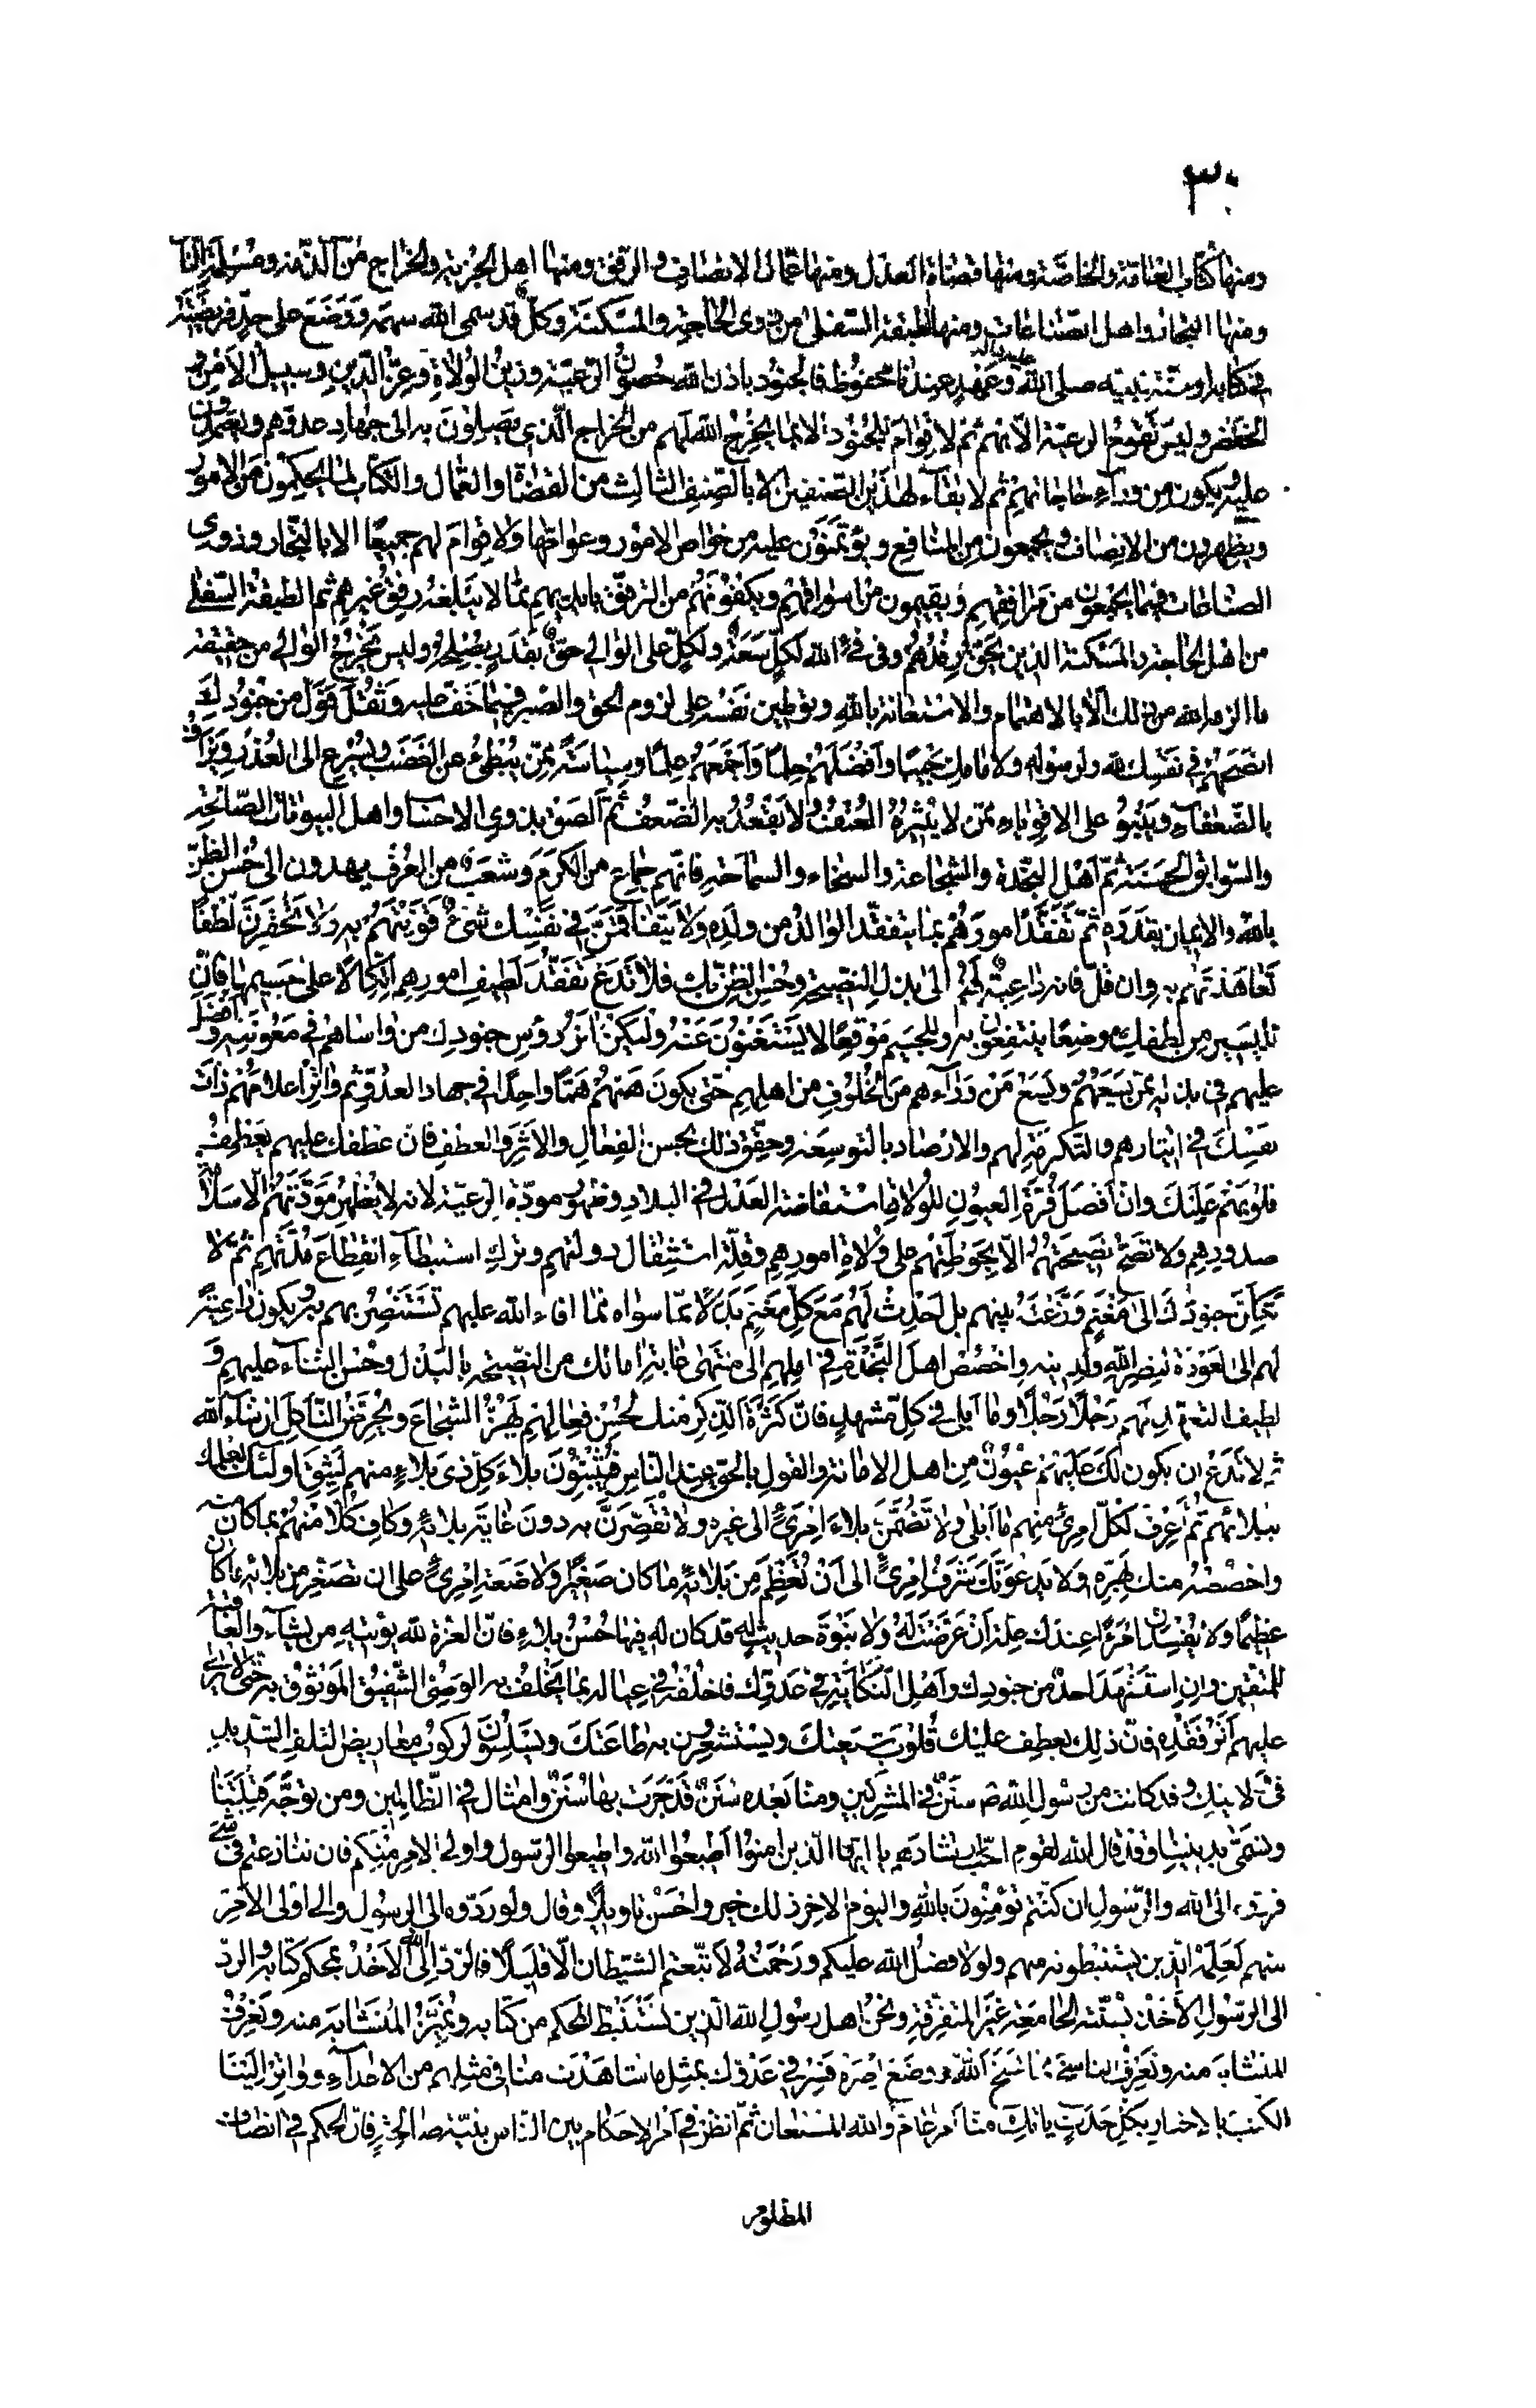 ٣٠
ومنها كتاب العامة والخاصة ومنها قضاة العدل ومنها عمال الانصاف والرفق ومنها اهل الجزية والخراج من اهل الذمة ومسلمة الناس
ومنها التجار واهل الصناعات ومنها الطبقة السفلى من ذوى الحاجة والمسكنة وكل قد سمى الله سهمه ووضع على حد فريضته
فى كتابه او سنة نبيه صلى الله عليه واله وعهد عندنا محفوظ فالجنود باذن الله حصون الرعية وزين الولاة وعز الدين وسبيل الامن و
الخفض وليس تقوم الرعية الا بهم ثم لا قوام للجنود الا بما يخرج الله لهم من الخراج الذى يصلون به الى جهاد عدوهم ويعتمدون
عليه ويكون من وراء حاجاتهم ثم لا بقاء لهذين الصنفين الا بالصنف الثالث من القضاة والعمال والكتاب لما يحكمون من الامور
ويظهرون من الانصاف ويجمعون من المنافع ويؤتمنون عليه من خواص الامور وعوامها ولا قوام لهم جميعا الا بالتجار وذوى
الصناعات فيما يجمعون من مرافقهم ويقيمون من اسواقهم ويكفونهم من الترفق بايديهم مما لا يبلغه رفق غيرهم ثم الطبقة السفلى
من اهل الحاجة والمسكنة الذين يحق رفدهم وفى فىء الله لكل سعة ولكل على الوالى حق بقدر يصلحه وليس يخرج الوالى من حقيقة
ما الزمه الله من ذلك الا بالاهتمام والاستعانة بالله وتوطين نفسه على لزوم الحق والصبر فيما خف عليه وثقل فول من جنودك
انصحهم فى نفسك لله ولرسوله ولامامك جيبا وافضلهم حلما واجمعهم علما وسياسة ممن يبطئ عن الغضب ويسرع الى العذر ويراف
بالضعفاء وينبو على الاقوياء ممن لا يثيره العنف ولا يقعد به الضعف ثم الصق بذوى الاحساب واهل البيوتات الصالحة
والسوابق الحسنة ثم اهل النجدة والشجاعة والسخاء والسماحة فانهم جماع من الكرم وشعب من العرف يهدون الى حسن الظن
بالله والايمان بقدره ثم تفقد امورهم بما يتفقد الوالد من ولده ولا يتفاقمن فى نفسك شىء قويتهم به ولا تحقرن لطفا
تعاهدتهم به وان قل فانه داعية لهم الى بذل النصيحة وحسن الظن بك فلا تدع تفقد لطيف امورهم اتكالا على جسيمها فان
لليسير من لطفك موضعا ينتفعون به وللجسيم موقعا لا يستغنون عنه وليكن اثر رؤس جنودك من واساهم فى معونته و افضل
عليهم فى بذله ممن يسعهم ويسع من وراءهم من الخلوف من اهلهم حتى يكون همهم هما واحدا فى جهاد العدو ثم واتر اعلامهم ذات
نفسك فى ايثارهم والتكرمة لهم والارصاد بالتوسعة وحقق ذلك بحسن الفعال والاثر والعطف فان عطفك عليهم يعطف
قلوبهم عليك وان افضل قرة العيون للولاة استفاضة العدل فى البلاد وظهور مودة الرعية لانه لا يظهر مودتهم الا سلامة
صدورهم ولا تصح نصيحتهم الا بحوطتهم على ولاة امورهم وقلة استثقال دولتهم وترك استبطاء انقطاع مدتهم ثم لا
تكلن جنودك الى مغنم وزعته بينهم بل احدث لهم مع كل مغنم بدلا مما سواه مما افاء الله عليهم تستنصر بهم به ويكون داعية
لهم الى العودة لنصر الله ولدينه واخصص اهل النجدة فى املهم الى منتهى غاية امالك من النصيحة بالبذل وحسن الثناء عليهم و
لطيف التعهد لهم رجلا رجلا وما ابلى فى كل مشهد فان كثرة الذكر منك لحسن فعالهم تهز الشجاع وتحرض الناكل ان شاء الله
ثم لا تدع ان يكون لك عليهم عيون من اهل الامانة والقول بالحق عند الناس فيثبتون بلاء كل ذى بلاء منهم ليثق اولئك بعلمك
ببلائهم ثم اعرف لكل امرئ منهم ما ابلى ولا تضمن بلاء امرئ الى غيره ولا تقصرن به دون غاية بلائه وكاف كلا منهم بما كان منه
واخصصه منك بهزة ولا يدعونك شرف امرئ الى ان تعظم من بلائه ما كان صغيرا ولا ضعة امرئ على ان تصغر من بلائه ما كان
عظيما ولا يفسدن امرءا عندك علة ان عرضت له ولا نبوة حديث له قد كان له فيها حسن بلاء فان العزة لله يؤتيه من يشاء والعاقبة
للمتقين وان استشهد احد من جنودك واهل النكاية فى عدوك فاخلفه فى عياله بما يخلف به الوصى الشفيق الموثوق به حتى لا يرى
عليهم اثر فقده فان ذلك يعطف عليك قلوب شيعتك ويستشعرون به طاعتك ويسلسون لركوب معاريض التلف الشديد
فى ولايتك وقد كانت من رسول الله ص سنن فى المشركين ومنا بعده سنن قد جرت بها سنن وامثال فى الظالمين ومن توجه قبلتنا
وتسمى بديننا وقد قال الله لقوم احب ارشادهم يا ايها الذين امنوا اطيعوا الله واطيعوا الرسول واولى الامر منكم فان تنازعتم فى شىء
فردوه الى الله والرسول ان كنتم تؤمنون بالله واليوم الاخر ذلك خير واحسن تاويلا وقال ولو ردوه الى الرسول والى اولى الامر
منهم لعلمه الذين يستنبطونه منهم ولولا فضل الله عليكم ورحمته لاتبعتم الشيطان الا قليلا فالرد الى الله الاخذ بمحكم كتابه والرد
الى الرسول الاخذ بسنته الجامعة غير المتفرقة ونحن اهل رسول الله الذين نستنبط المحكم من كتابه ونميز المتشابه منه ونعرف
المتشابه منه ونعرف الناسخ مما نسخ الله ووضع اصره فسر فى عدوك بمثل ما شاهدت منا فى مثلهم من الاعداء وواتر الينا
الكتب بالاخبار بكل حدث ياتك منا امر عام والله المستعان ثم انظر فى امر الاحكام بين الناس بنية صالحة فان الحكم فى انصاف
المظلوم